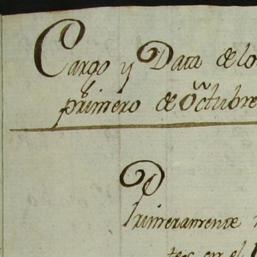 Cargo y Data de lo
primero de octubre
Primeramente
tes en el